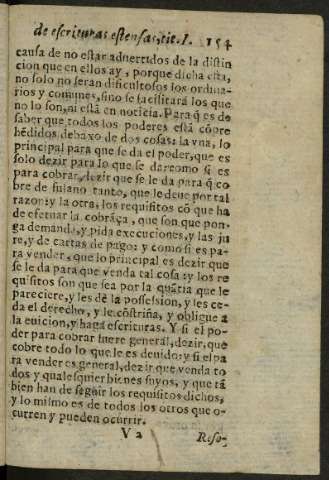 de escrituras estensas, tit. I. 154
causa de no estar aduertidos de la distin
cion que en ellos ay, porque dicha esta,
no solo no seran dificultosos los ordina-
rios y comunes, sino se facilitarà los que
no lo son, ni està en noticia. Para q̃ es de
saber que todos los poderes està cõpre
hẽdidos debaxo de dos cosas: la vna, lo
principal para que se da el poder, que es
solo dezir para lo que se da: como si es
para cobrar, dezir que se le da para q̃ co
bre de fulano tanto, que le deue por tal
razon: y la otra, los requisitos cõ que ha
de efetuar la cobrãça, que son que pon-
ga demanda, y pida execuciones, y las ju
re, y de cartas de pago: y como si es pa-
ra vender, que lo principal es dezir que
se le da para que venda tal cosa: y los re
quisitos son que sea por la quãtia que le
pareciere, y les dè la possession, y les ce-
da el derecho, y le cõstriña, y obligue a
la euicion, y haga escrituras. Y si el po-
der para cobrar fuere general, dezir, que
cobre todo lo que le es deuido: y si el pa
ra vender es general, dezir que venda to
dos y qualesquier bienes suyos, y que tã
bien han de seguir los requisitos dichos,
y lo mismo es de todos los otros que o-
curren y pueden ocurrir.
V 2 Reso-